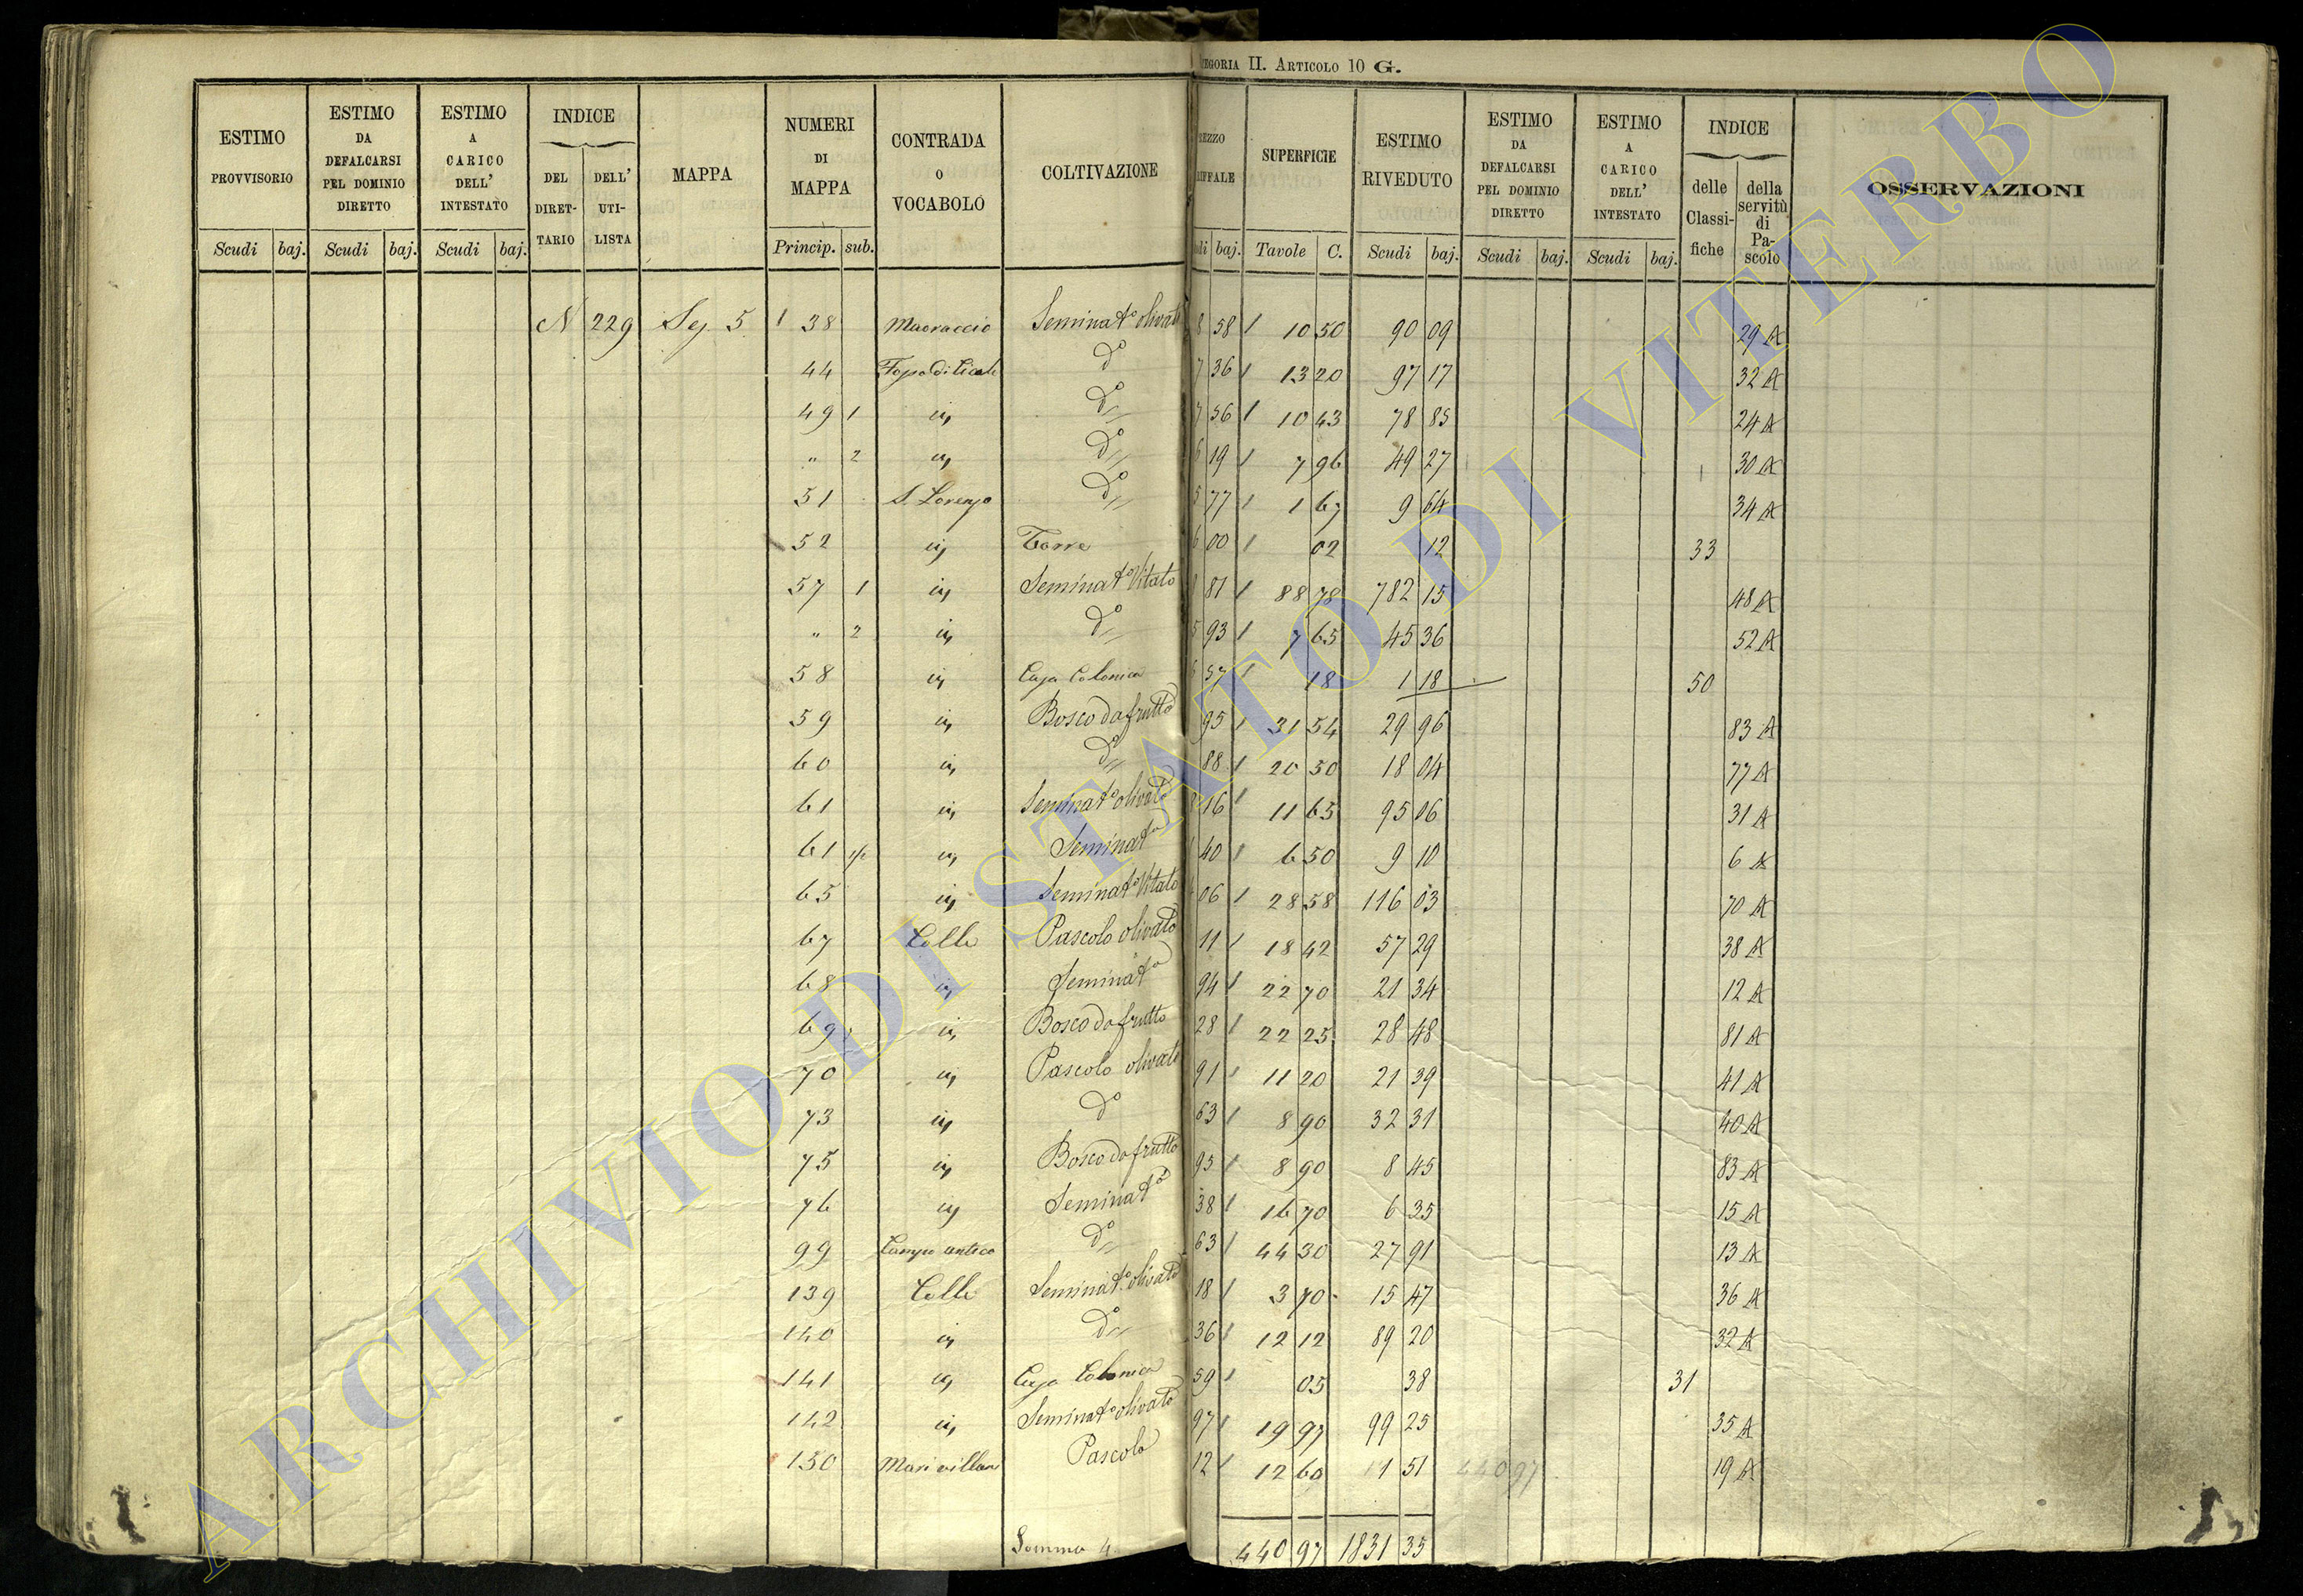 EGORIA II. ARTICOLO 10 G.
ESTIMO PROVVISORIO
ESTIMO DA DEFALCARSI PEL DOMINIO DIRETTO
ESTIMO A CARICO DELL' INTESTATO
INDICE
DEL DIRET-TARIO
DELL' UTI-LISTA
MAPPA
NUMERI DI MAPPA
CONTRADA O VOCABOLO
COLTIVAZIONE
REZZO RIFFALE
SUPERFICIE
ESTIMO RIVEDUTO
ESTIMO DA DEFALCARSI PEL DOMINIO DIRETTO
ESTIMO A CARICO DELL' INTESTATO
INDICE
delle Classi-fiche
della servitù di Pa-scolo
OSSERVAZIONI
Scudi baj. Scudi baj. Scudi baj. Princip. sub. di baj. Tavole C. Scudi baj. Scudi baj. Scudi baj.
N 229 Sez 5 38 Seminat° olivato 8 58 10 50 90 09 29 A
44 d° 7 36 13 20 97 17 32 A
49 1 d° 7 56 10 43 78 85 24 A
" 2 d° 6 19 7 96 49 27 30 A
51 S. Lorenzo d° 5 77 1 67 9 64 34 A
52 Torre 6 00 02 12 33
57 1 Seminat° Vitato 81 88 78 782 15 48 A
" 2 d° 5 93 7 65 45 36 52 A
58 Casa Colonica 6 57 18 1 18 50
59 Bosco da frutto 95 31 54 29 96 83 A
60 d° 88 20 50 18 04 77 A
61 Seminat° olivato 16 11 65 95 06 31 A
61 1/2 Seminat° 40 6 50 9 10 6 A
65 Seminat° Vitato 06 28 58 116 03 70 A
67 Colle Pascolo olivato 11 18 42 57 29 38 A
68 Seminat° 94 22 70 21 34 12 A
69 Bosco da frutto 28 22 25 28 48 81 A
70 Pascolo olivato 91 11 20 21 39 41 A
73 d° 63 8 90 32 31 40 A
75 Bosco da frutto 95 8 90 8 45 83 A
76 Seminat° 38 16 70 6 35 15 A
99 Campo antico d° 63 44 30 27 91 13 A
139 Colle Seminat° olivato 18 3 70 15 47 36 A
140 d° 36 12 12 89 20 32 A
141 Casa Colonica 59 05 38 31
142 Seminat° olivato 97 19 97 99 25 35 A
150 Pascolo 12 12 60 1 51 440 97 19 A
Somma 440 97 1831 35
ARCHIVIO DI STATO DI VITERBO